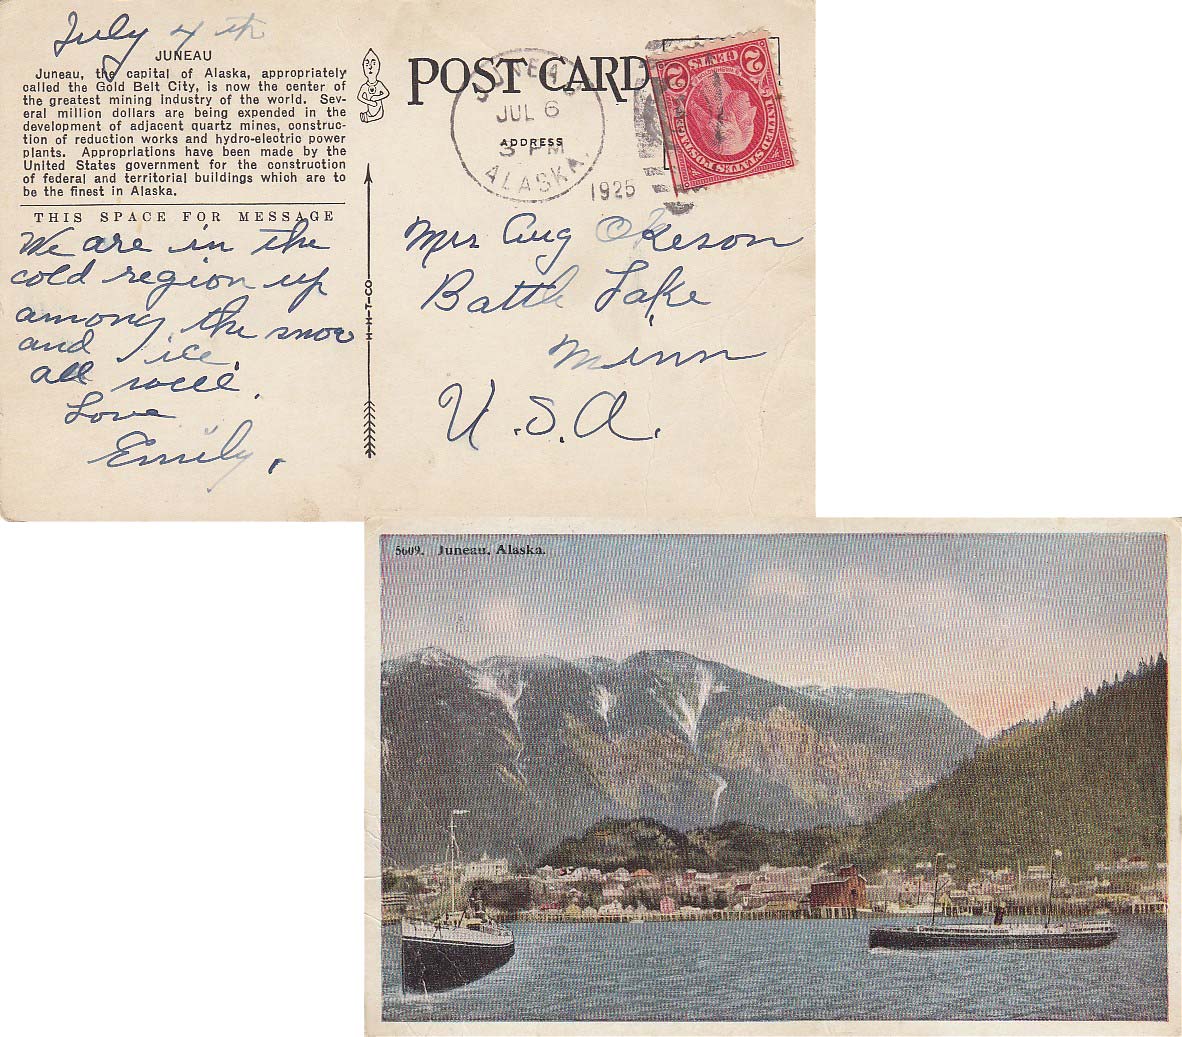 July 4th
JUNEAU
Juneau, the capital of Alaska, appropriately
called the Gold Belt City, is now the center of
the greatest mining industry of the world. Sev-
eral million dollars are being expended in the
development of adjacent quartz mines, construc-
tion of reduction works and hydro-electric power
plants. Appropriations have been made by the
United States government for the construction
of federal and territorial buildings which are to
be the finest in Alaska.
THIS SPACE FOR MESSAGE
We are in the
cold region up
among the snow
and ice.
All well.
Love
Emily.
H-H-T-CO
POST CARD
ADDRESS
JUNEAU
JUL 6
3 PM
ALASKA.
1925
UNITED STATES POSTAGE
2 CENTS 2
Mrs Aug Okeson
Battle Lake
Minn
U.S.A.
5609. Juneau, Alaska.